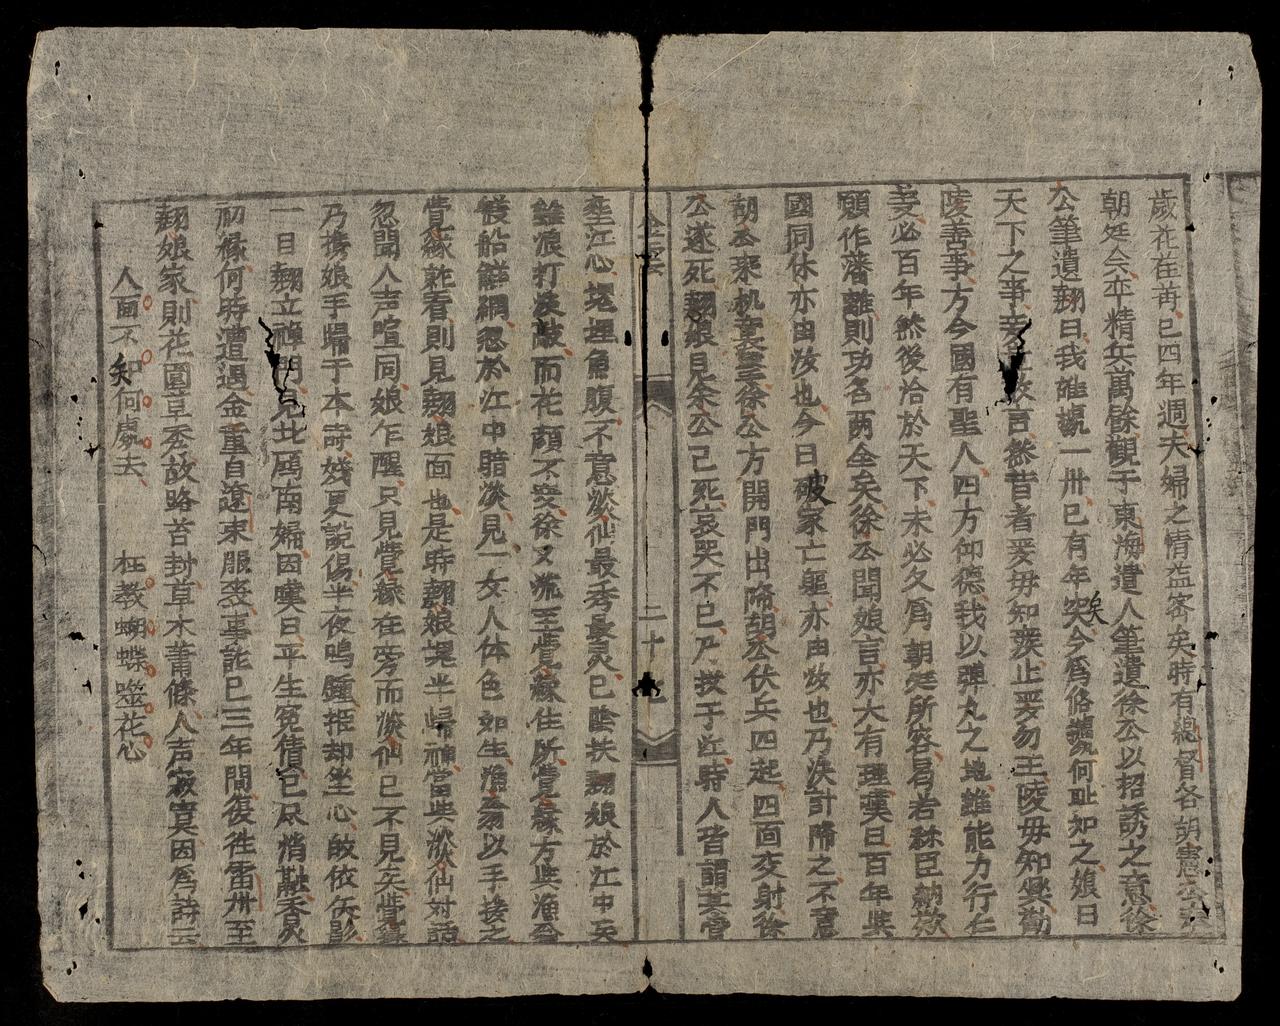 歲花荏苒已四年週夫婦之情益密矣時有總督各胡憲奉
朝廷命卒精兵萬餘觀于東海遣人筆遺徐公以招誘之意徐
公筆遺翹曰我誰據一卅已有年矣今為脩𧦧何耻如之娘曰
天下之事言然昔者嬰母知廢止嬰勿王陵母知興勸
陵善事方今國有聖人四方仰德我以彈丸之地雖能力行仁
妾必百年然後洽於天下未必久為朝廷所容君若稱臣納欵
願作藩籬則功名兩全矣徐公聞娘言亦大有理嘆曰百年與
國同休亦由汝也今日破家亡軀亦由汝也乃決計降之不意
朝公乘机襲至徐公方開門出降胡公伏兵四起四面交射徐
公遂死翹娘見徐公已死哀哭不已乃投于江時人皆謂其當
二十七
塟江心堤埋魚腹不意淡仙最秀最灵已陰扶翹娘於江中矣
雖浪打淚敲而花顏不変徐又流至覺緣住所覺緣方與漁翁
艤船觧網忽於江中暗淡見一女人体色如生漁翁以手接之
覺緣就看則見翹娘面也是時翹娘晃半歸神當與淡仙對語
忽聞人声喧同娘乍醒只見覺緣在旁而淡仙已不見矣覺緣
乃携娘手歸于本寺姥夏說傷半夜鳴鍾推却坐心皈依矢影
一日翹立禪門見北鴈南婦因嘆曰平生冤債已尽消融香灵
初緣何時遭遇金重自遼東服喪事訖已三年間復徃雷卅至
翹娘家則花園草秀故路苔封草木蕭條人声寂寞因為詩云
人面不知何處去　枉教蝴蝶蹤花心